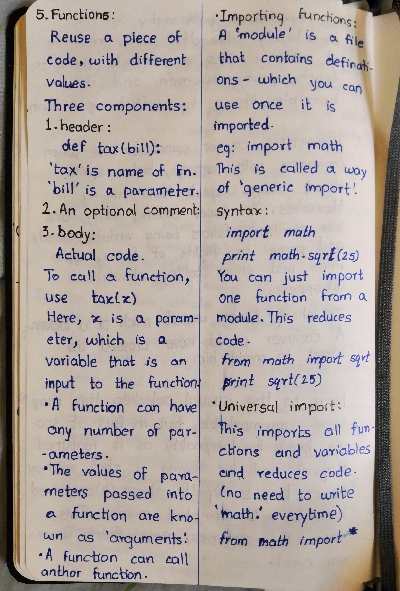 5. Functions:
Reuse a piece of
code, with different
values.
Three components:
1. header:
def tax(bill):
'tax' is name of fn.
'bill' is a parameter.
2. An optional comment:
3. body:
Actual code.
To call a function,
use tax(x)
Here, x is a param-
eter, which is a
variable that is an
input to the function.
• A function can have
any number of par-
-ameters.
• The values of para-
meters passed into
a function are kno-
wn as 'arguments'.
• A function can call
anthor function.
• Importing functions:
A 'module' is a file
that contains definati-
ons - which you can
use once it is
imported.
eg: import math
This is called a way
of 'generic import'.
syntax:
import math
print math.sqrt(25)
You can just import
one function from a
module. This reduces
code.
from math import sqrt
print sqrt(25)
• Universal import:
This imports all fun-
ctions and variables
and reduces code.
(no need to write
'math.' everytime)
from math import *